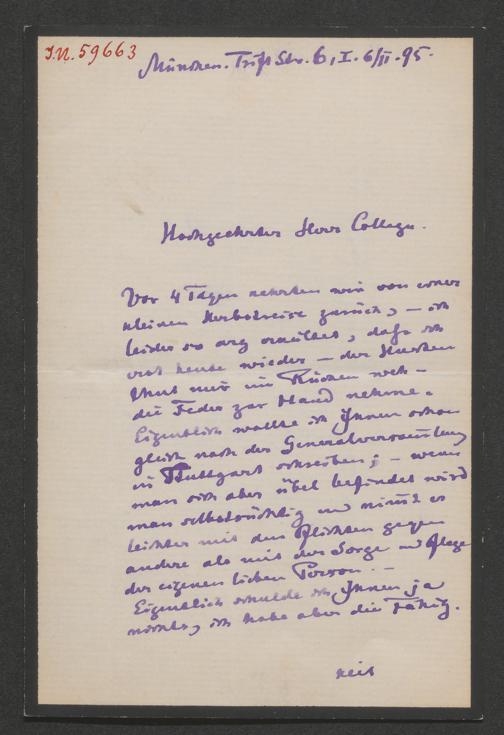 I.N. 59663
München. Trift Str. 6, I. 6/II. 95.
Hochgeehrter Herr College.
Vor 4 Tagen kehrten wir von einer
kleinen Herbstreise zurück, – ich
leider so arg erkältet, daß ich
erst heute wieder – der Husten
thut mir im Rücken weh –
die Feder zur Hand nehme.
Eigentlich wollte ich Ihnen schon
gleich nach der Generalversammlung
in Stuttgart schreiben; – wenn
man sich aber übel befindet wird
man selbstsüchtig und nimmt es
leichter mit den Pflichten gegen
andere als mit der Sorge und Pflege
der eigenen lieben Person. –
Eigentlich schulde ich Ihnen ja
nichts, ich habe aber die Fähig-
keit